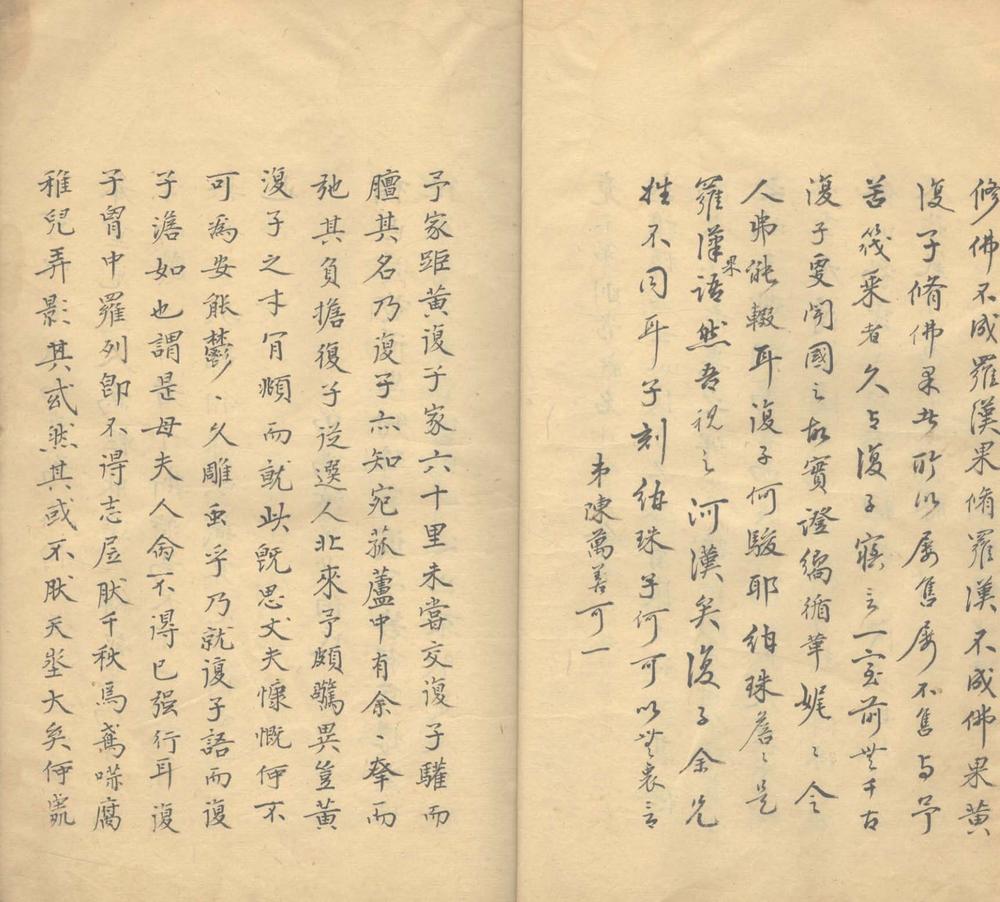 修佛不成羅漢果脩羅漢不成佛果黃
復子脩佛果此所以屡售屡不售与予
苦筏乗者久与復子寤言一室前無千古
復子更閱國之故實證編循華娓〻令
人弗能輟耳復子何駿耶绐珠詹〻是
羅漢果語然吾祝之河漢矣復子余兄
姓不同耳子刻绐珠子何可以無衷言
弟陳萬善可一
予家距黃復子家六十里未嘗交復子驩而
膻其名乃復子亦知宛菰蘆中有余〻擧而
弛其負擔復子從選人北來予頗驚異豈黃
復子之才冐頫而就此旣思丈夫慷慨何不
可爲安能鬱〻久雕虫乎乃就復子語而復
子澹如也謂是母夫人命不得已强行耳復
子胷中羅列卽不得志屈肰千秋焉鳶嚇腐
稚兒弄影其或然其或不肰天壑大矣何處